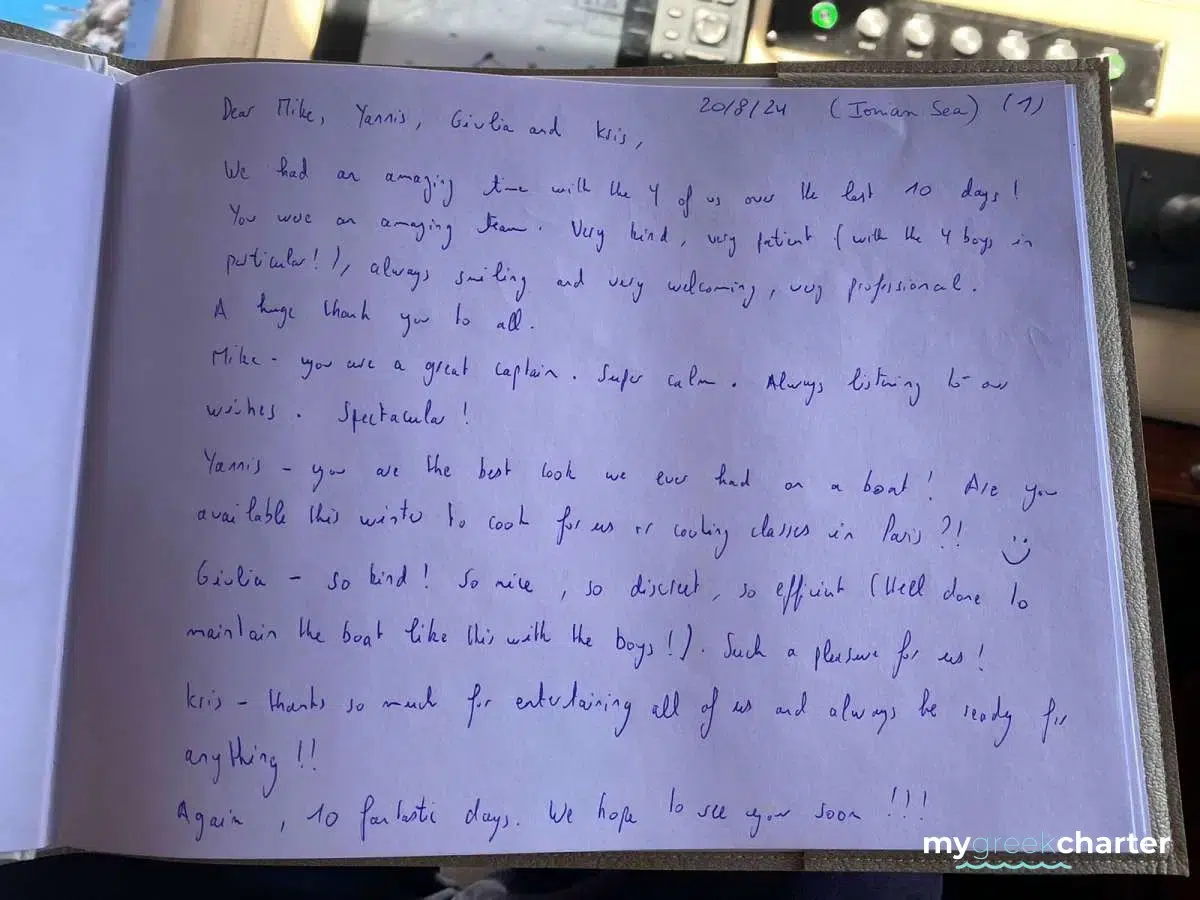 20/8/24 (Ionian Sea) (1)
Dear Mike, Yannis, Giulia and Kris,
We had an amazing time with the 4 of us over the last 10 days!
You were an amazing team. Very kind, very patient (with the 4 boys in
particular!), always smiling and very welcoming, very professional.
A huge thank you to all.
Mike - you are a great captain. Super calm. Always listening to our
wishes. Spectacular!
Yannis - you are the best cook we ever had on a boat! Are you
available this winter to cook for us or cooking classes in Paris?! :)
Giulia - so kind! So nice, so discreet, so efficient (Well done to
maintain the boat like this with the boys!). Such a pleasure for us!
Kris - thanks so much for entertaining all of us and always be ready for
anything!!
Again, 10 fantastic days. We hope to see you soon!!!
mygreekcharter